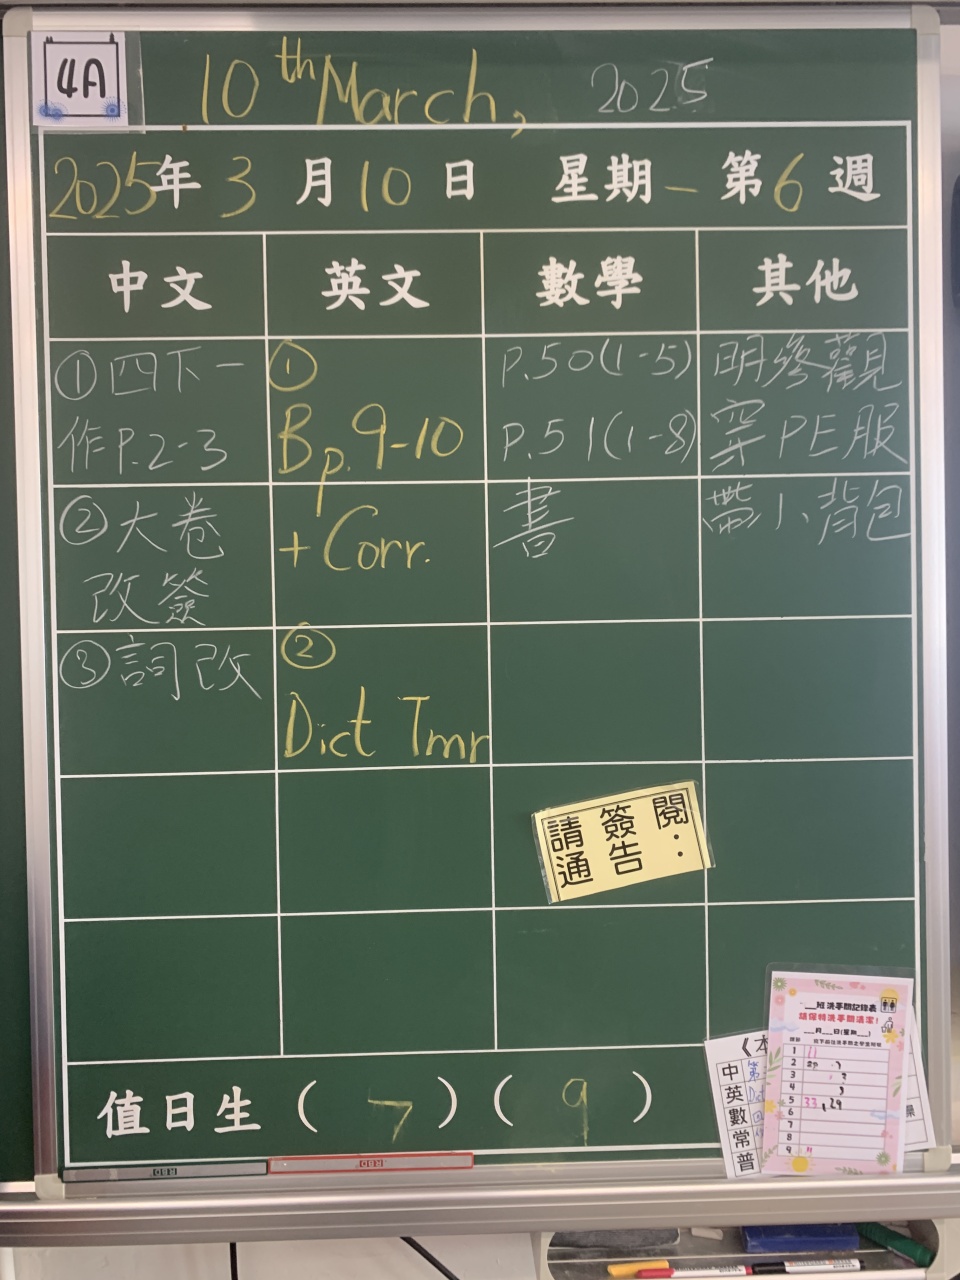 4A
10th March, 2025
2025年3月10日 星期一 第6週
中文 英文 數學 其他
①四下一
作P.2-3
②大卷
改簽
③詞改
①
Bp.9-10
+Corr.
②
Dict Tmr
P.50(1-5)
P.51(1-8)
書
明參觀
穿PE服
帶小背包
請簽閱
通告:
值日生(7)(9)
中 第
英
數
常
普
班洗手間記錄表
請保持洗手間清潔!
月 日(星期 )
1 11
2
3
4
5 33,29
6
7
8
9